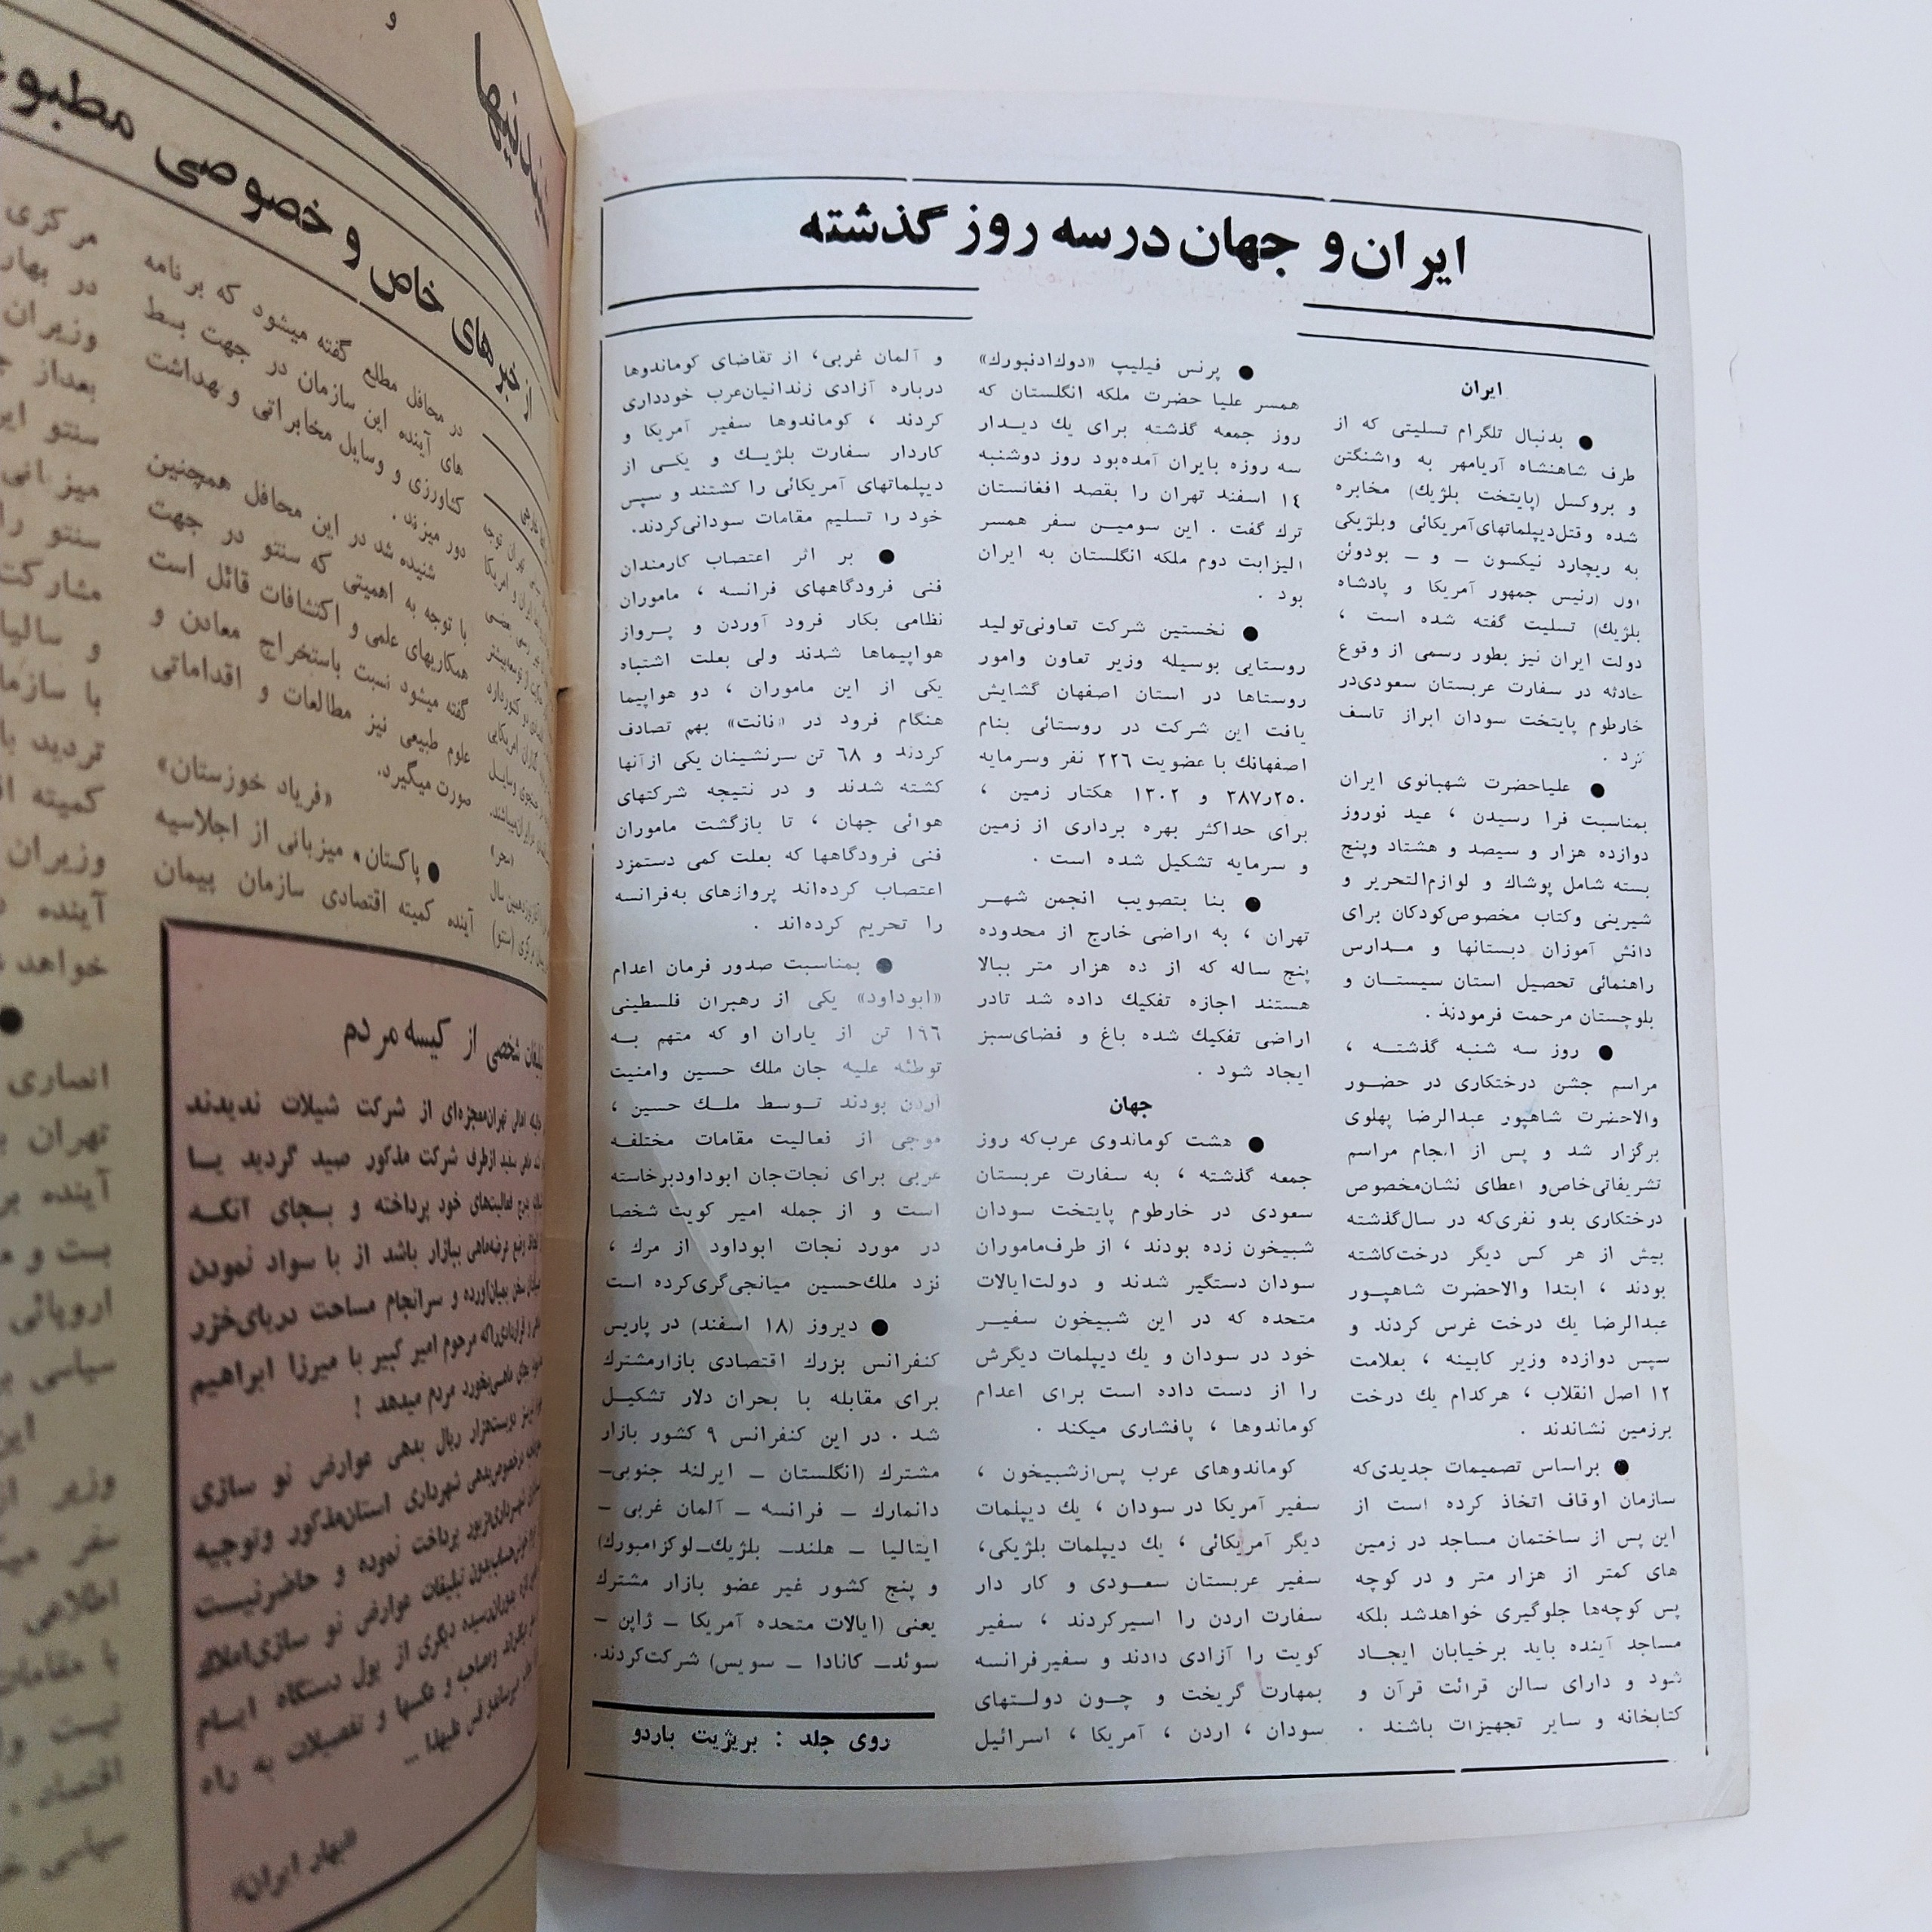 ایران و جهان در سه روز گذشته
ایران
● بدنبال تلگرام تسلیتی که از
طرف شاهنشاه آریامهر به واشنگتن
و بروکسل (پایتخت بلژیك) مخابره
شده وقتل‌دیپلماتهای‌آمریکائی وبلژیکی
به ریچارد نیکسون ــ و ــ بودوئن
اول (رئیس جمهور آمریکا و پادشاه
بلژیك) تسلیت گفته شده است ،
دولت ایران نیز بطور رسمی از وقوع
حادثه در سفارت عربستان سعودی‌در
خارطوم پایتخت سودان ابراز تاسف
کرد .
● علیاحضرت شهبانوی ایران
بمناسبت فرا رسیدن ، عید نوروز
دوازده هزار و سیصد و هشتاد وپنج
بسته شامل پوشاك و لوازم‌التحریر و
شیرینی وکتاب مخصوص‌کودکان برای
دانش آموزان دبستانها و مــدارس
راهنمائی تحصیل استان سیستــان و
بلوچستان مرحمت فرمودند .
● روز سه شنبه گذشتــه ،
مراسم جشن درختکاری در حضــور
والاحضرت شاهپور عبدالرضا پهلوی
برگزار شد و پس از انجام مراسم
تشریفاتی‌خاص‌و اعطای نشان‌مخصوص
درختکاری بدو نفری‌که در سال‌گذشته
بیش از هر کس دیگر درخت‌کاشته
بودند ، ابتدا والاحضرت شاهپــور
عبدالرضا یك درخت غرس کردند و
سپس دوازده وزیر کابینه ، بعلامت
۱۲ اصل انقلاب ، هرکدام یك درخت
برزمین نشاندند .
● براساس تصمیمات جدیدی‌که
سازمان اوقاف اتخاذ کرده است از
این پس از ساختمان مساجد در زمین
های کمتر از هزار متر و در کوچه
پس کوچه‌ها جلوگیری خواهدشد بلکه
مساجد آینده باید برخیابان ایجــاد
شود و دارای سالن قرائت قرآن و
کتابخانه و سایر تجهیزات باشند .
● پرنس فیلیپ «دوك‌ادنبورك»
همسر علیا حضرت ملکه انگلستان که
روز جمعه گذشته برای یك دیــدار
سه روزه بایران آمده‌بود روز دوشنبه
۱٤ اسفند تهران را بقصد افغانستان
ترك گفت . این سومیــن سفر همسر
الیزابت دوم ملکه انگلستان به ایران
بود .
● نخستین شرکت تعاونی‌تولید
روستایی بوسیله وزیر تعاون وامور
روستاها در استان اصفهان گشایش
یافت این شرکت در روستائی بنام
اصفهانك با عضویت ۲۲٦ نفر وسرمایه
۳۸۷ر۲۵۰ و ۱۳۰۲ هکتار زمین ،
برای حداکثر بهره برداری از زمین
و سرمایه تشکیل شده است .
● بنا بتصویب انجمن شهــر
تهران ، به اراضی خارج از محدوده
پنج ساله که از ده هزار متر ببالا
هستند اجازه تفکیك داده شد تادر
اراضی تفکیك شده باغ و فضای‌سبز
ایجاد شود .
جهان
● هشت کوماندوی عرب‌که روز
جمعه گذشته ، به سفارت عربستان
سعودی در خارطوم پایتخت سودان
شبیخون زده بودند ، از طرف‌ماموران
سودان دستگیر شدند و دولت‌ایالات
متحده که در این شبیخون سفیــر
خود در سودان و یك دیپلمات دیگرش
را از دست داده است برای اعدام
کوماندوها ، پافشاری میکند .
کوماندوهای عرب پس‌ازشبیخون ،
سفیر آمریکا در سودان ، یك دیپلمات
دیگر آمریکائی ، یك دیپلمات بلژیکی،
سفیر عربستان سعــودی و کار دار
سفارت اردن را اسیرکردند ، سفیر
کویت را آزادی دادند و سفیرفرانسه
بمهارت گریخت و چــون دولــتهای
سودان ، اردن ، آمریکا ، اسرائیل
و آلمان غربی، از تقاضای کوماندوها
درباره آزادی زندانیان‌عرب خودداری
کردند ، کوماندوها سفیر آمریکا و
کاردار سفارت بلژیــك و یکــی از
دیپلماتهای آمریکائی را کشتند و سپس
خود را تسلیم مقامات سودانی‌کردند.
● بر اثر اعتصاب کارمندان
فنی فرودگاههای فرانسه ، ماموران
نظامی بکار فرود آوردن و پــرواز
هواپیماها شدند ولی بعلت اشتباه
یکی از این ماموران ، دو هواپیما
هنگام فرود در «نانت» بهم تصادف
کردند و ٦۸ تن سرنشینان یکی ازآنها
کشته شدند و در نتیجه شرکتهای
هوائی جهان ، تا بازگشت ماموران
فنی فرودگاهها که بعلت کمی دستمزد
اعتصاب کرده‌اند پروازهای به‌فرانسه
را تحریم کرده‌اند .
● بمناسبت صدور فرمان اعدام
«ابوداود» یکی از رهبران فلسطینی
۱۹٦ تن از یاران او که متهم بــه
توطئه علیه جان ملك حسین وامنیت
اردن بودند تــوسط ملــك حسین ،
موجی از فعالیت مقامات مختلفــه
عربی برای نجات‌جان ابوداودبرخاسته
است و از جمله امیر کویت شخصا
در مورد نجات ابوداود از مرك ،
نزد ملك‌حسین میانجی‌گری‌کرده است
● دیروز (۱۸ اسفند) در پاریس
کنفرانس بزرك اقتصادی بازارمشترك
برای مقابله با بحران دلار تشکیــل
شد . در این کنفرانس ۹ کشور بازار
مشترك (انگلستان ــ ایرلند جنوبی‌ــ
دانمارك ــ فرانسه ــ آلمان غربی ــ
ایتالیا ــ هلندــ بلژیك‌ــ‌لوکزامبورك)
و پنج کشور غیر عضو بازار مشترك
یعنی (ایالات متحده آمریکا ــ ژاپن ــ
سوئدــ کانادا ــ سویس) شرکت‌کردند.
روی جلد : بریژیت باردو
و
از خبرهای خاص و خصوصی
در محافل مطلع گفته میشود که برنامه
های آینده این سازمان در جهت بسط
کشاورزی و وسایل مخابراتی و بهداشت
دور میزند .
شنیده شد در این محافل همچنین
با توجه به اهمیتی که سنتو در جهت
همکاریهای علمی و اکتشافات قائل است
گفته میشود نسبت باستخراج معادن و
علوم طبیعی نیز مطالعات و اقداماتی
صورت میگیرد.
«فریاد خوزستان»
● پاکستان، میزبانی از اجلاسیه
آینده کمیته اقتصادی سازمان پیمان
مرکزی
در بهار
وزیران
شخصی از کیسه مردم
از شرکت شیلات ندیدند
شرکت مذکور صید گردید یــا
فعالیتهای خود پرداخته و بــجای آنکــه
ببازار باشد از با سواد نمودن
و سرانجام مساحت دریای‌خزر
مرحوم امیر کبیر با میرزا ابراهیم
بخورد مردم میدهد !
ریال بدهی عوارض نو سازی
شهرداری استان‌مذکور وتوجیه
پرداخت نموده و حاضرنیست
تبلیغات عوارض نو سازی‌املاك
دیگری از پول دستگاه ایــام
و عکسها و تفصیلات به راه
«بهار ایران»